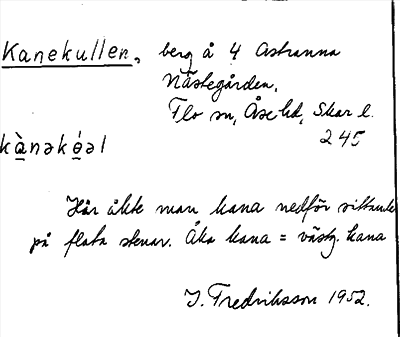 Kanekullen, berg å 4 Astranna
Nästegården,
Flo sn, Åse hd, Skar l.
245
kànəkéəl
Här åkte man kana nedför sittande
på flata stenar. Åka kana = västg. kana
J. Fredriksson 1952.